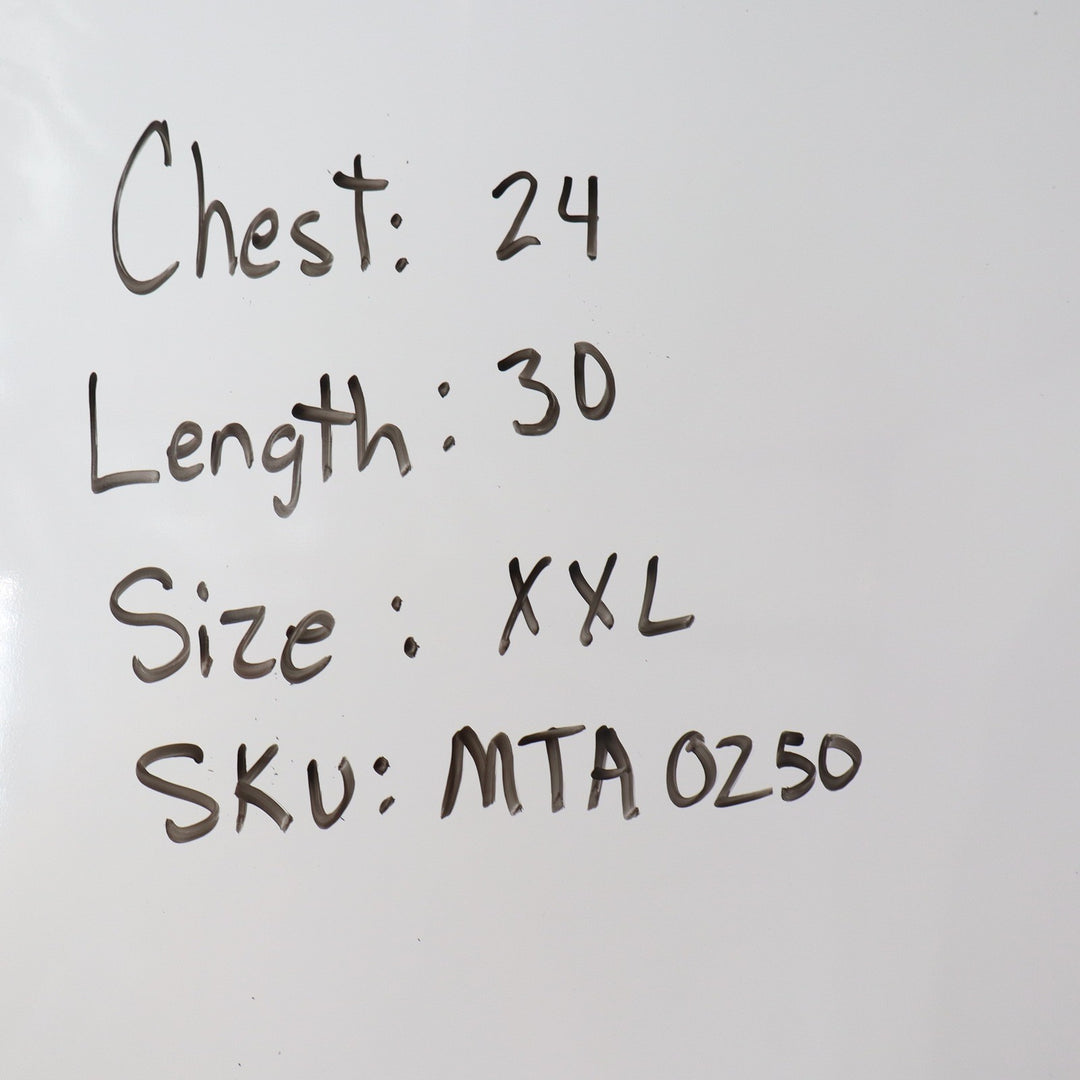 Chest: 24
Length: 30
Size: XXL
SKU: MTA 0250